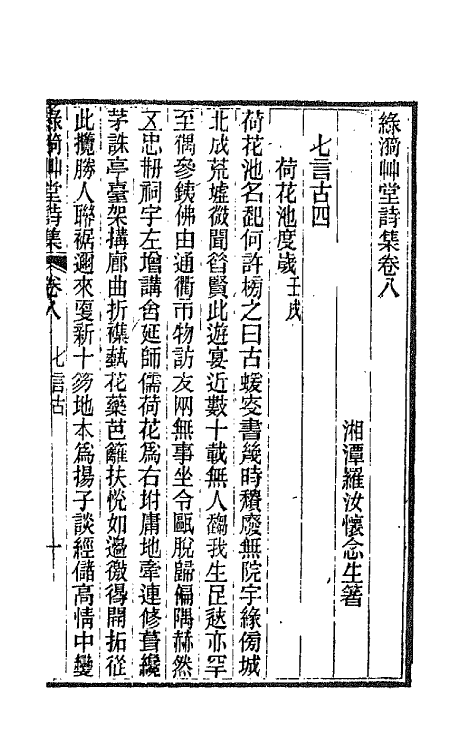 綠漪艸堂詩集卷八
湘潭羅汝懷念生著
七言古四
荷花池度歲壬戌
荷花池名起何許榜之曰古蝯叟書幾時穨廢無院宇緣傍城
北成荒墟微聞昝賢此遊宴近數十載無人芻我生足迹亦罕
至偶參銕佛由通衢市物訪友兩無事坐令甌脫歸偏隅赫然
又忠刱祠宇左增講舍延師儒荷花爲右坿庸地牽連修葺纔
茅誅亭臺架搆廊曲折襍蓺花藥芭籬扶恍如邊徼得開拓從
此攬勝人聯裾邇來更新十笏地本爲揚子談經儲高情中變
綠漪艸堂詩集 卷八 七言古 十